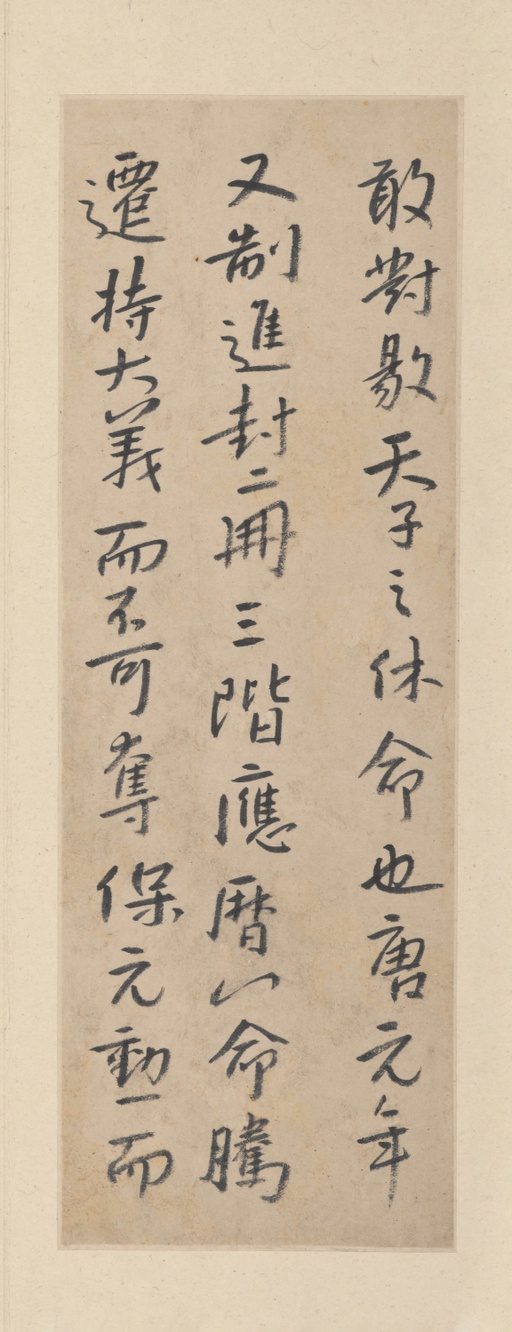 敢對敭天子之休命也唐元年
又制進封二冊三階應暦八命騰
遷持大義而不可奪保元勲而